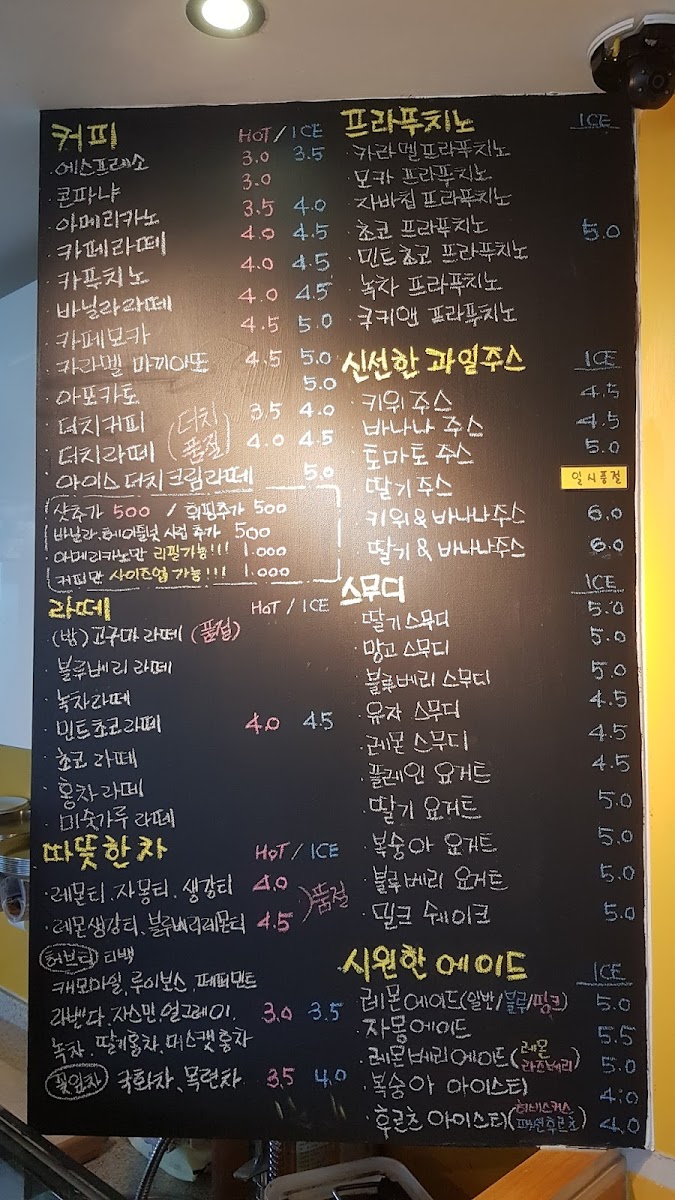 커피 HOT / ICE
· 에스프레소 3.0 3.5
· 콘파냐 3.0
· 아메리카노 3.5 4.0
· 카페라떼 4.0 4.5
· 카푸치노 4.0 4.5
· 바닐라라떼 4.0 4.5
· 카페모카 4.5 5.0
· 카라멜 마끼아또 4.5 5.0
· 아포카토 5.0
· 더치커피 3.5 4.0
· 더치라떼 (더치 품절) 4.0 4.5
· 아이스 더치크림라떼 5.0
샷추가 500 / 휘핑추가 500
바닐라.헤이즐넛 시럽 추가 500
아메리카노만 리필가능!!! 1.000
커피만 사이즈업 가능!!! 1.000
라떼 HOT / ICE
· (밤)고구마라떼 (품절)
· 블루베리 라떼
· 녹차라떼
· 민트초코라떼 4.0 4.5
· 초코 라떼
· 홍차라떼
· 미숫가루 라떼
따뜻한 차 HOT / ICE
· 레몬티. 자몽티. 생강티 4.0
· 레몬생강티. 블루베리레몬티 4.5 )품절
허브티 티백
캐모마일, 루이보스, 페퍼민트
라벤다, 자스민, 얼그레이, 3.0 3.5
녹차, 딸기홍차, 머스캣홍차
꽃잎차 국화차、목련차 3.5 4.0
프라푸치노 ICE
· 카라멜프라푸치노
· 모카 프라푸치노
· 자바칩 프라푸치노
· 초코 프라푸치노 5.0
· 민트초코 프라푸치노
· 녹차 프라푸치노
· 쿠키앤 프라푸치노
신선한 과일주스 ICE
· 키위 주스 4.5
· 바나나 주스 4.5
· 토마토 주스 5.0
· 딸기 주스 일시품절
· 키위 & 바나나주스 6.0
· 딸기 & 바나나주스 6.0
스무디 ICE
· 딸기스무디 5.0
· 망고 스무디 5.0
· 블루베리 스무디 5.0
· 유자 스무디 4.5
· 레몬 스무디 4.5
· 플레인 요거트 4.5
· 딸기 요거트 5.0
· 복숭아 요거트 5.0
· 블루베리 요거트 5.0
· 밀크 쉐이크 5.0
시원한 에이드 ICE
· 레몬에이드(일반/블루/핑크) 5.0
· 자몽에이드 5.5
· 레몬베리에이드(레몬 라즈베리) 5.0
· 복숭아 아이스티 4.0
· 후르츠 아이스티(히비스커스 패션후르츠) 4.0